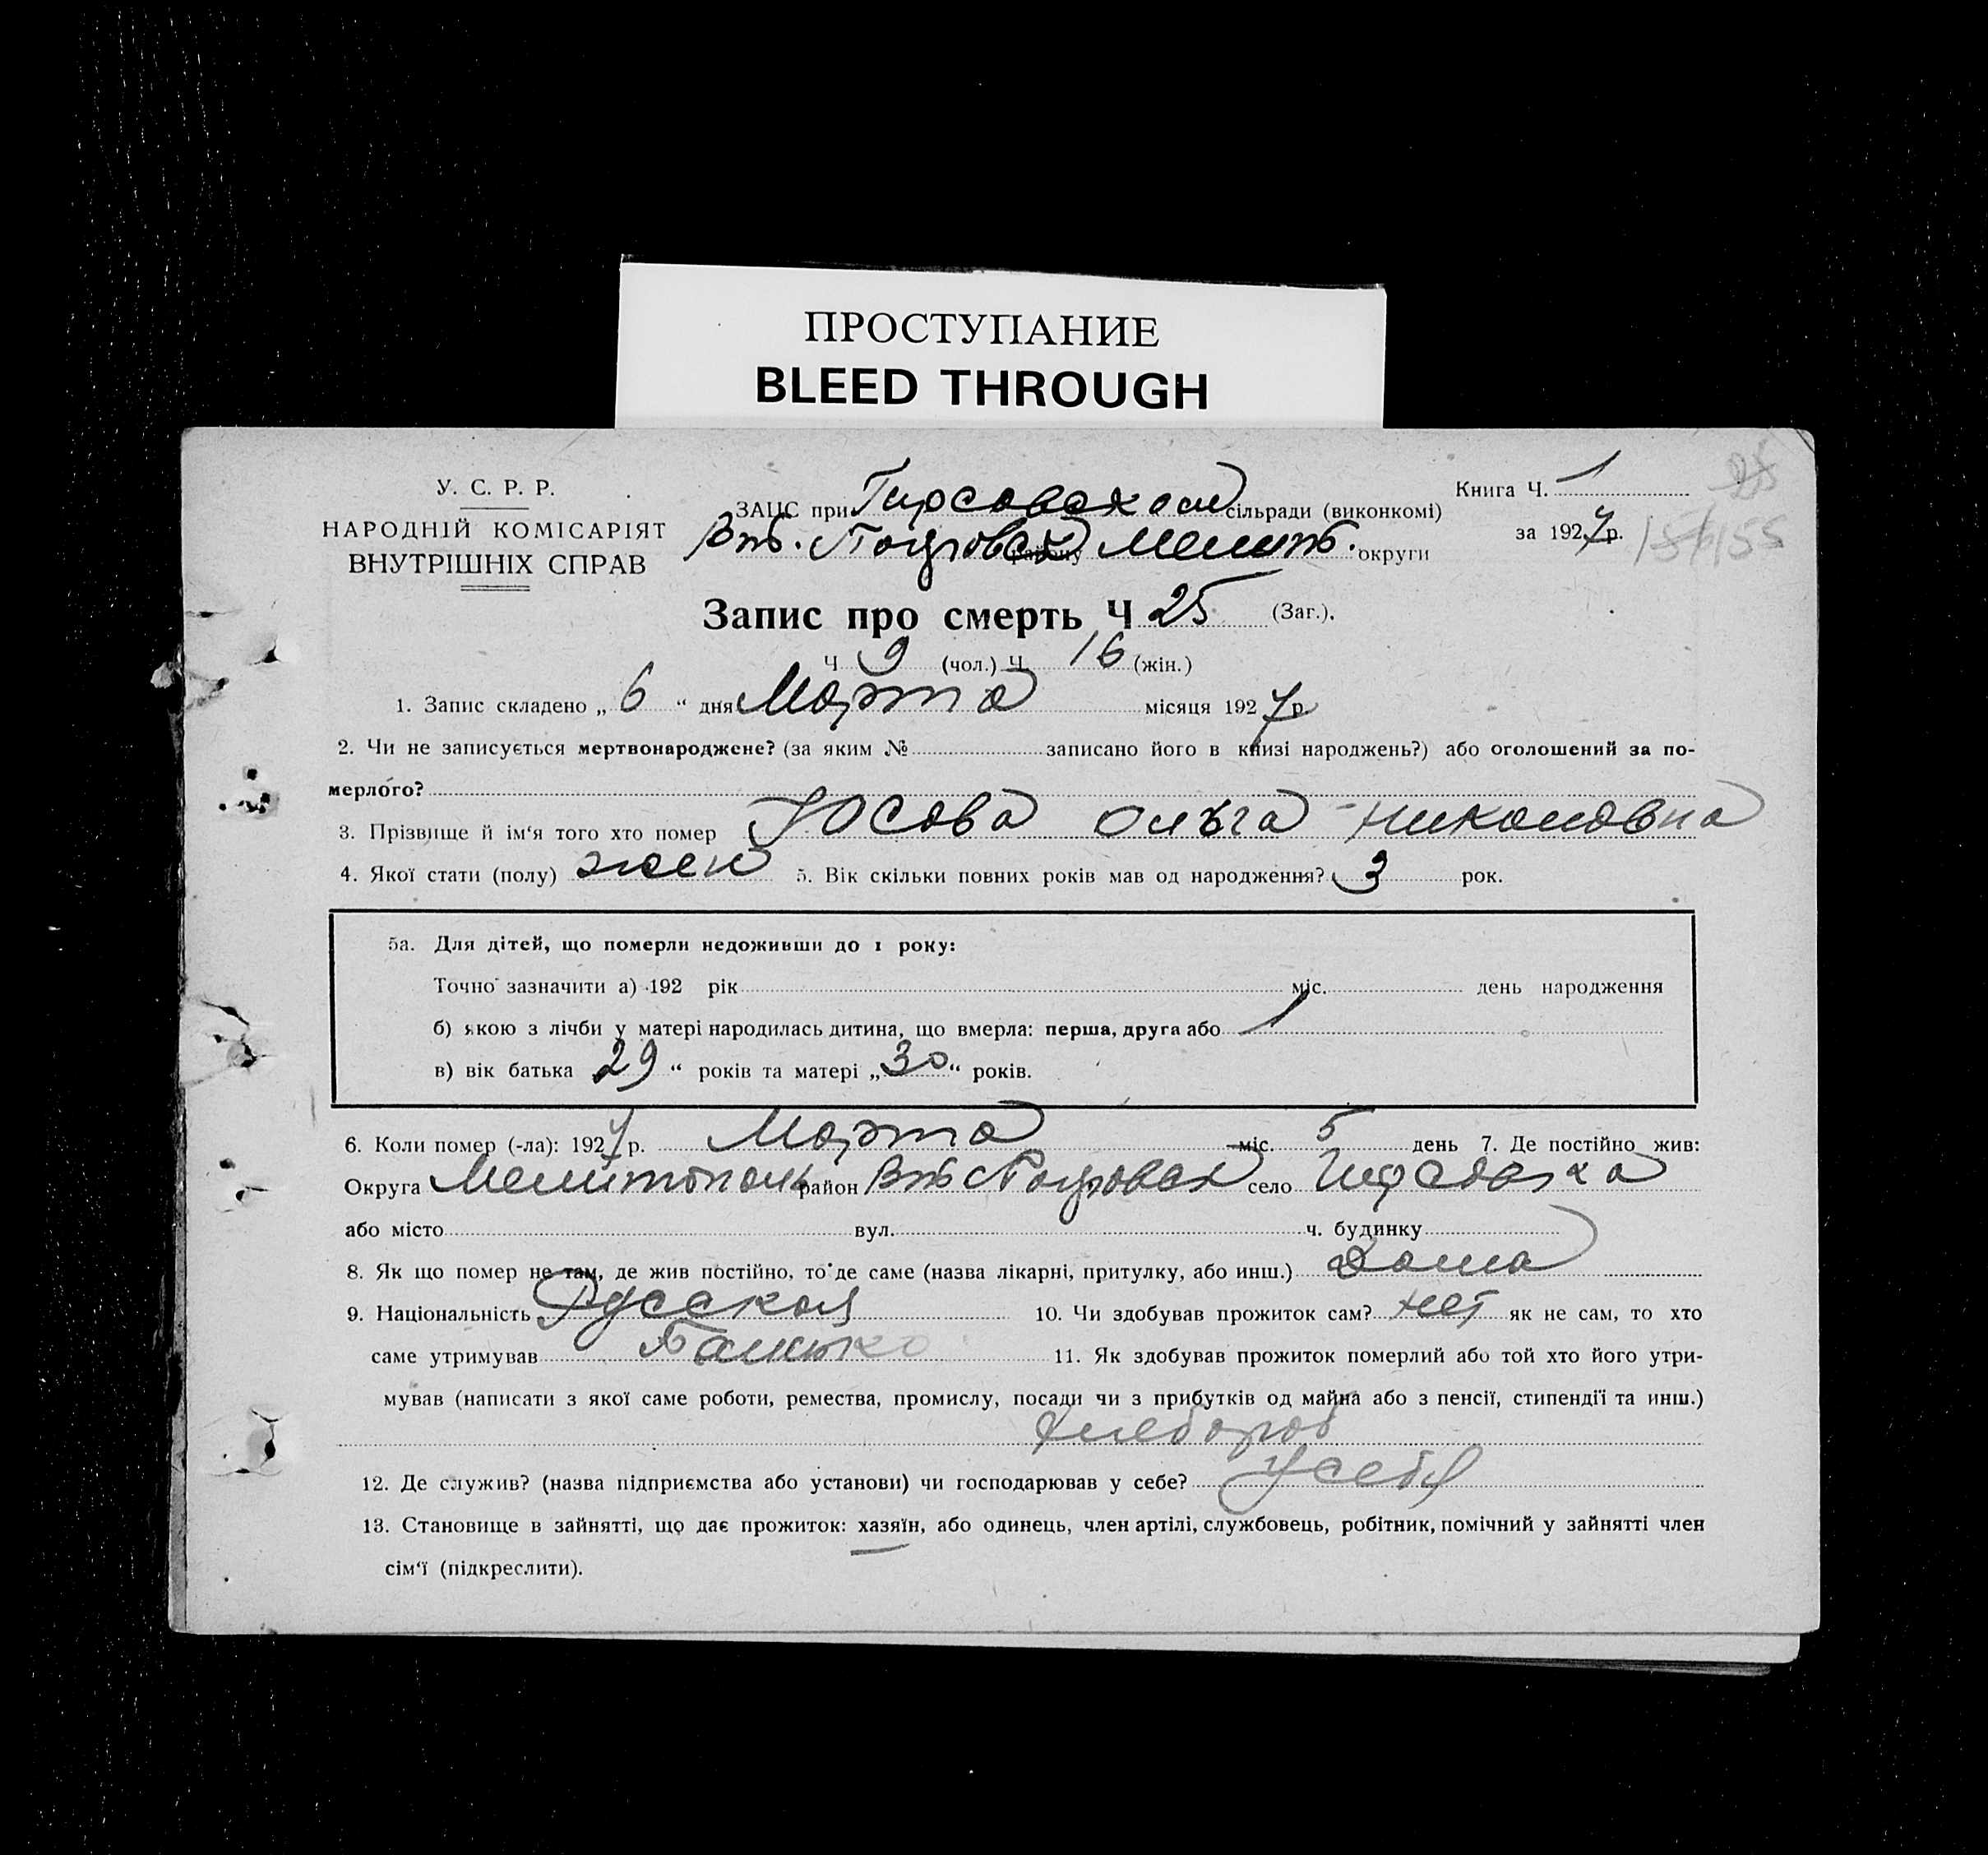 ПРОСТУПАНИЕ
BLEED THROUGH
У. С. Р. Р.
НАРОДНІЙ КОМІСАРІЯТ
ВНУТРІШНІХ СПРАВ
ЗАПС при Гирсовском сільради (виконкомі)
району Мелит. округи
Книга Ч. 1
за 1927 р.
25
155
Запис про смерть Ч 25 (Заг.).
Ч 9 (чол.) Ч 16 (жін.)
1. Запис складено „ 6 “ дня Марта місяця 1927 р.
2. Чи не записується мертвонароджене? (за яким № записано його в книзі народжень?) або оголошений за по-
мерлого?
3. Прізвище й ім‘я того хто помер Юсова Ольга Никоновна
4. Якої стати (полу) жен 5. Вік скільки повних років мав од народження? 3 рок.
5а. Для дітей, що померли недоживши до 1 року:
Точно зазначити а) 192 рік міс. день народження
б) якою з лічби у матері народилась дитина, що вмерла: перша, друга або 1
в) вік батька 29 “ років та матері „ 30 “ років.
6. Коли помер (-ла): 1927 р. Марта міс. 5 день 7. Де постійно жив:
Округа Мелитополь район село Гирсовка
або місто вул. ч. будинку
8. Як що помер не там, де жив постійно, то де саме (назва лікарні, притулку, або инш.) Дома
9. Національність Русская 10. Чи здобував прожиток сам? нет як не сам, то хто
саме утримував Батько 11. Як здобував прожиток померлий або той хто його утри-
мував (написати з якої саме роботи, ремества, промислу, посади чи з прибутків од майна або з пенсії, стипендії та инш.)
хлебороб
12. Де служив? (назва підприємства або установи) чи господарював у себе? у себя
13. Становище в зайнятті, що дає прожиток: хазяїн, або одинець, член артілі, службовець, робітник, помічний у зайнятті член
сім‘ї (підкреслити).